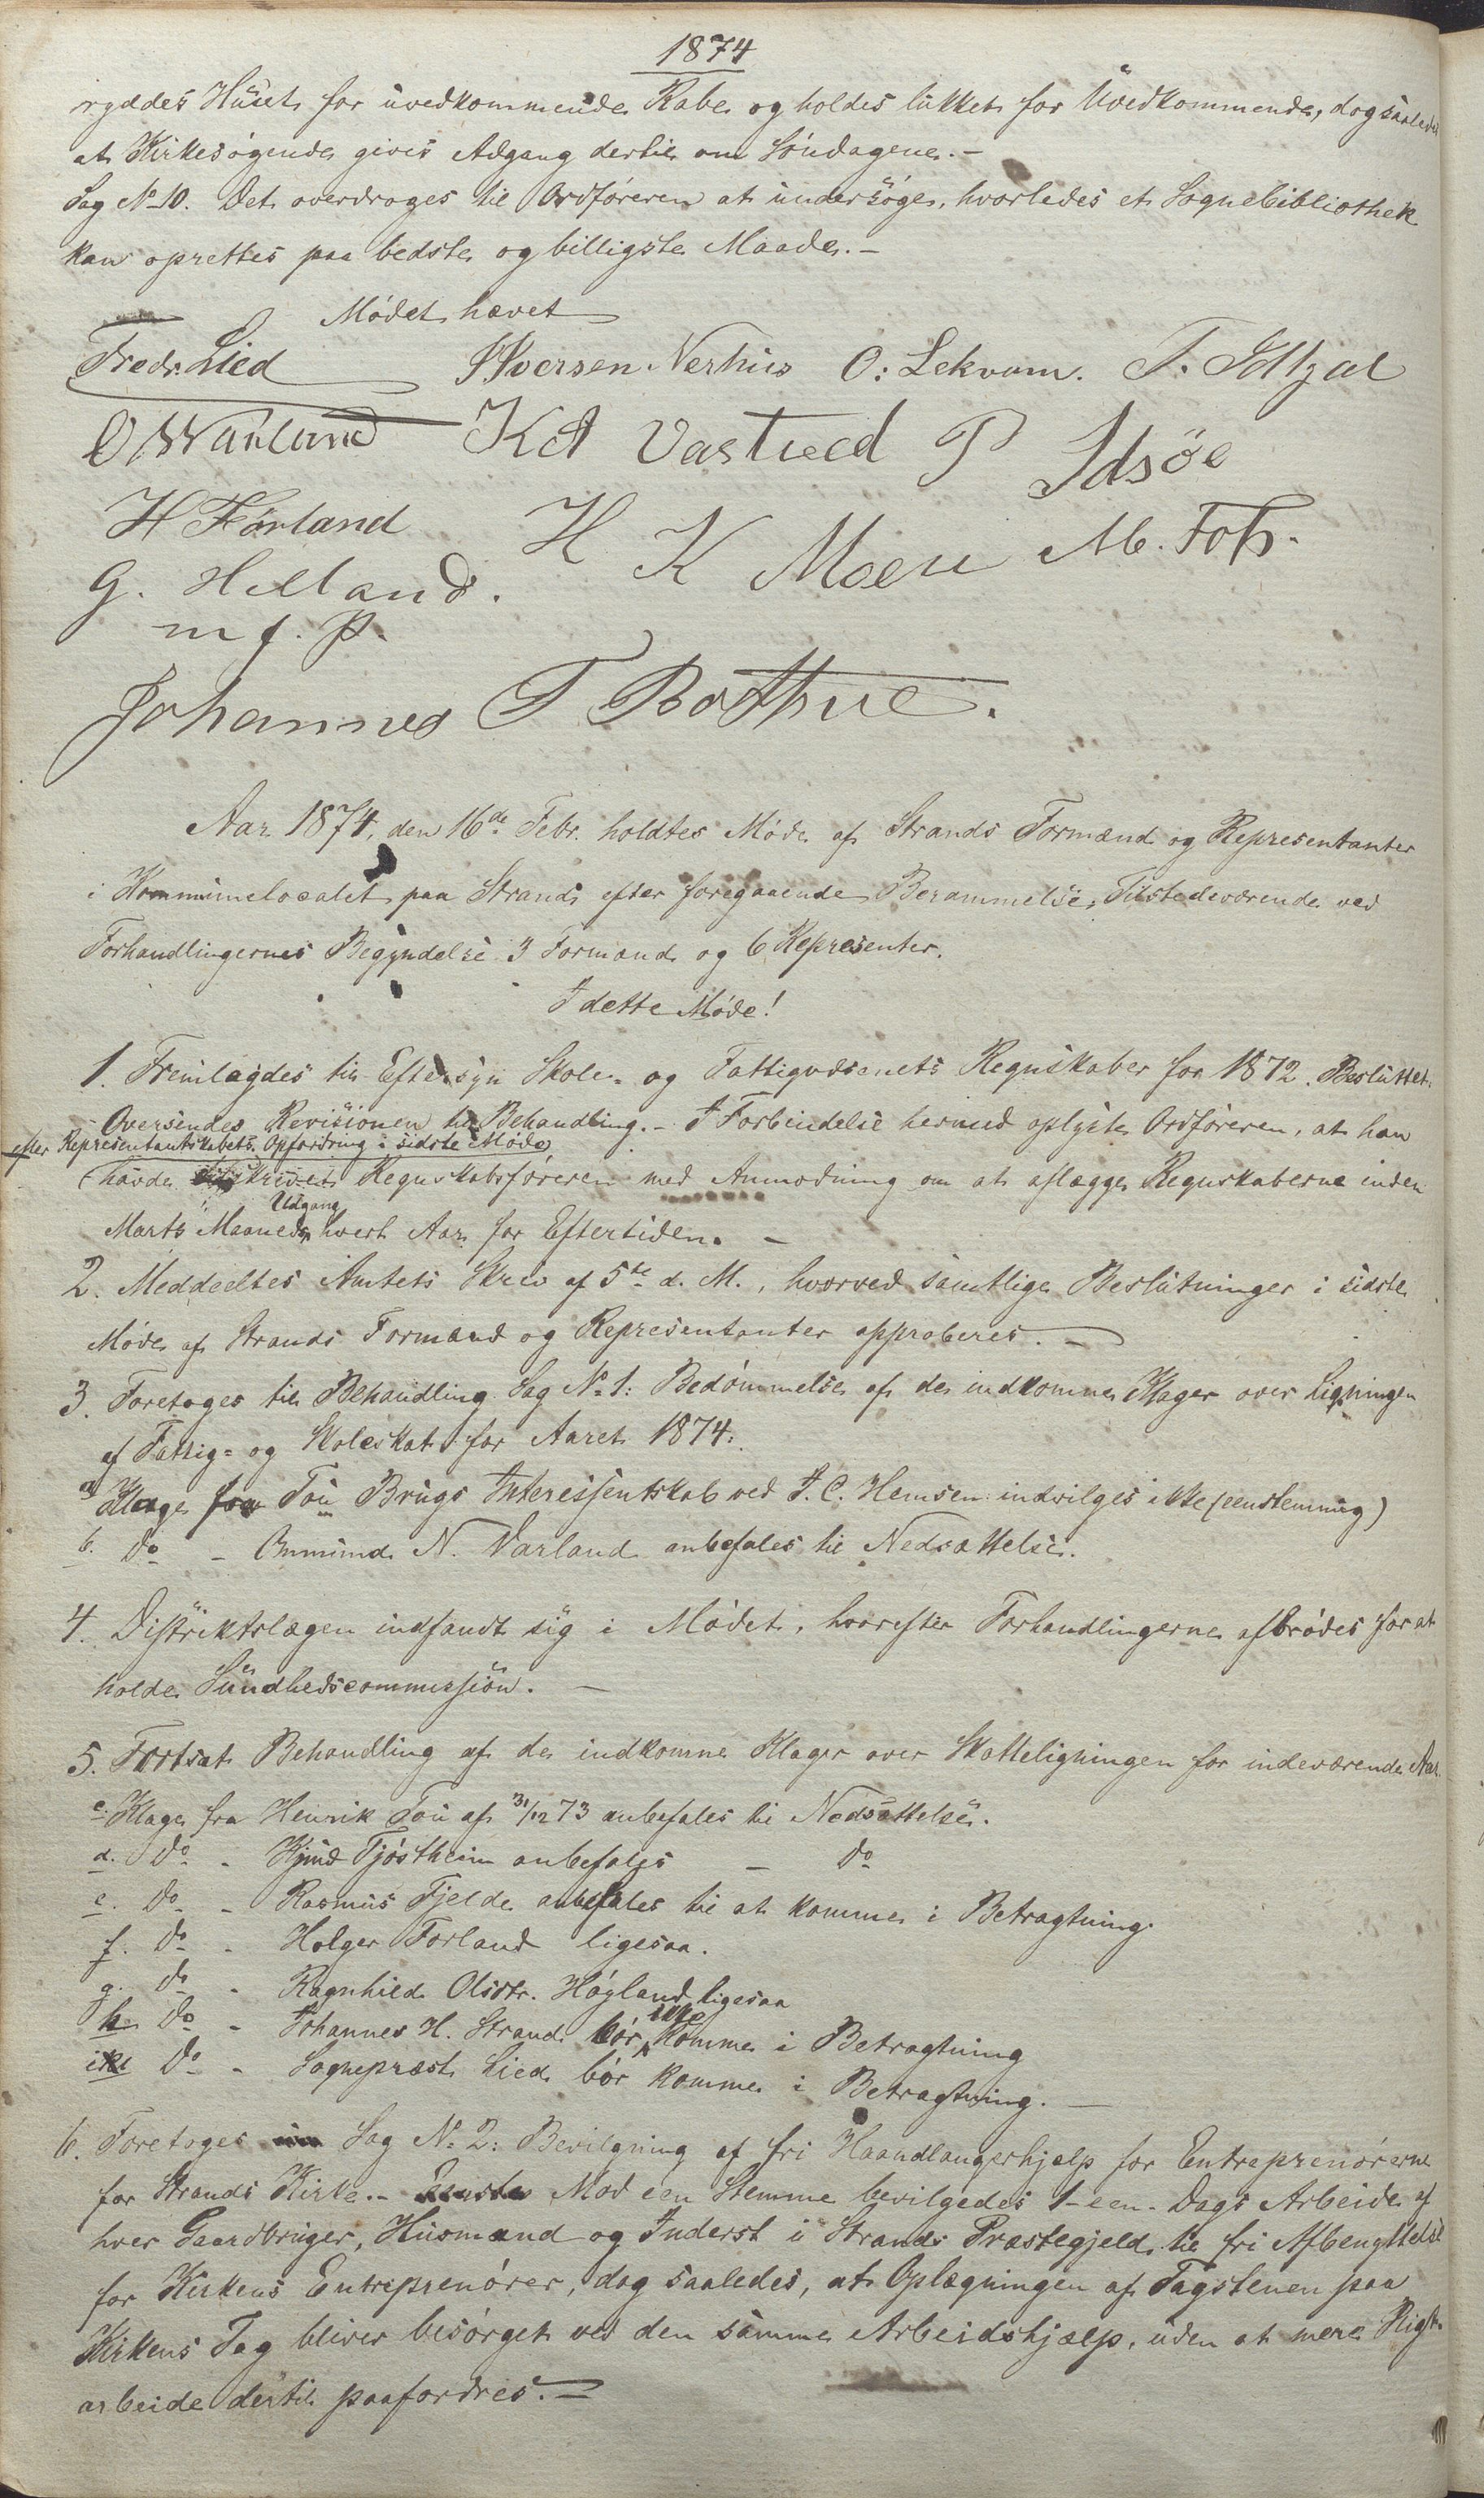 1874
ryddes Huset for uvedkommende Sager og holdes lukket for Uvedkommende, dog saaledes
at Kirkesøgende gives Adgang dertil om Søndagene. -
Sag No 10. Det overdroges til Ordføreren at undersøge, hvorledes et Sognebibliothek
kan oprettes paa bedste og billigste Maade. -
Mødet hævet
Fredr. Lied Iversen Nerhus O: Lekvam.
O Warland K A Vastveed P Idsöe
H Førland H K Moen M.
G. Helland.
m f. P.
Johannes T Bothne.
Aar 1874, den 16de Febr. holdtes Møde af Strands Formænd og Representanter
i Kommunelocalet paa Strand efter foregaaende Berammelse, Tilstedeværende ved
Forhandlingernes Begyndelse 3 Formænd og 6 Represeenter.
I dette Møde!
1. Fremlagdes til Eftersyn Skole- og Fattigvæsenets Regnskaber for 1872. Besluttet
Oversendes Revisionen til Behandling. - I Forbindelse hermed oplyste Ordføreren, at han
efter Representantskabets Opfordring i sidste Møde
havde tilskrevet Regnskabsføreren med Anmodning om at aflægge Regnskaberne inden
Udgang
Marts Maaneds hvert Aar for Eftertiden. -
2. Meddeeltes Amtets Skriv af 5te d. M., hvorved samtlige Beslutninger i sidste
Møde af Strands Formænd og Representanter approberes. -
3. Foretoges til Behandling Sag No 1: Bedømmelse af de indkomne Klager over Ligningen
af Fattig- og Skoleskat for Aaret 1874:
a Klage fra Tou Brugs Interessentskab ved I. C. Hemsen indvilges ikke (eenstemmig)
b. Do - Ommund N. Varland anbefales til Nedsættelse.
4. Distriktslægen indfandt sig i Mødet, hvorefter Forhandlingerne afbrødes for at
holde Sundhedscommission. -
5. Fortsat Behandling af de indkomne Klager over Skatteligningen for indeværende Aar.
c. Klage fra Henrik Tou af 31/12 73 anbefales til Nedsættelse.
d. Do - Tjøstheim anbefales - Do
e. Do - Rasmus Fjelde anbefales til at komme i Betragtning.
f. Do - Holger Førland ligesaa.
g. Do - Ragnhild Olsdtr. Høyland ligesaa
ikke
h. Do - Johannes H. Strand bør komme i Betragtning
i Do - Sognepræst Lied bør komme i Betragtning. -
6. Foretoges Sag No 2: Bevilgning af fri Haandlangerhjelp for Entreprenørerne
for Strands Kirke. - Mod een Stemme bevilgedes 1 - een - Dags Arbeide af
hver Gaardbruger, Husmand og Inderst i Strands Præstegjeld til fri Afbenyttelse
for Kirkens Entreprenører, dog saaledes, at Oplægningen af Tagstenen paa
Kirkens Tag bliver besørget ved den samme Arbeidshjælp, uden at mere Pligt-
arbeide dertil paafordres. -